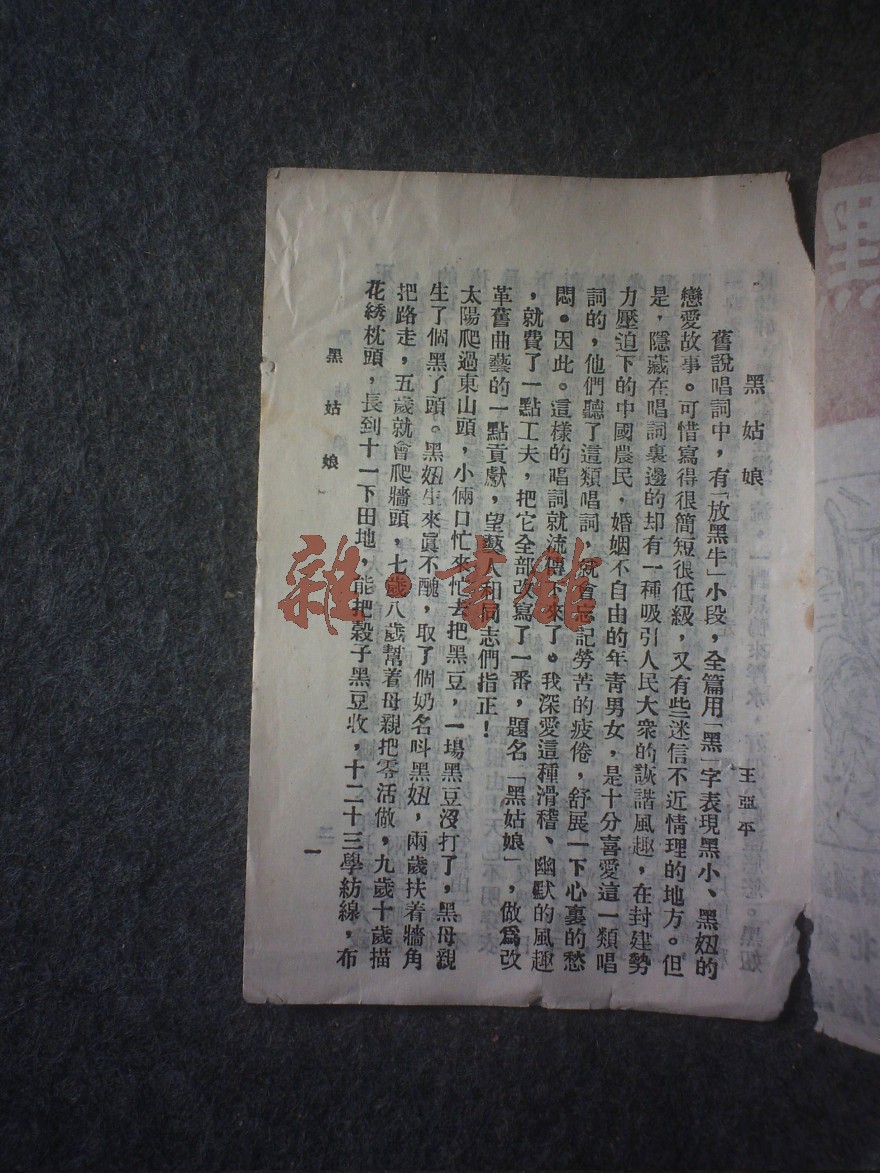 黑姑娘
王亞平
舊說唱詞中,有「放黑牛」小段,全篇用「黑」字表現黑小、黑妞的
戀愛故事。可惜寫得很簡短很低級,又有些迷信不近情理的地方。但
是,隱藏在唱詞裏邊的却有一種吸引人民大衆的詼諧風趣,在封建勢
力壓迫下的中國農民,婚姻不自由的年靑男女,是十分喜愛這一類唱
詞的,他們聽了這類唱詞,就會忘記勞苦的疲倦,舒展一下心裏的愁
悶。因此。這樣的唱詞就流傳下來了。我深愛這種滑稽、幽默的風趣
,就費了一點工夫,把它全部改寫了一番,題名「黑姑娘」,做爲改
革舊曲藝的一點貢獻,望藝人和同志們指正!
太陽爬過東山頭,小倆口忙來忙去把黑豆,一場黑豆沒打了,黑母親
生了個黑了頭。黑妞生來眞不醜,取了個奶名叫黑妞,兩歲扶着牆角
把路走,五歲就會爬牆頭,七歲八歲幫着母親把零活做,九歲十歲描
花綉枕頭,長到十一下田地,能把穀子黑豆收,十二十三學紡線,布
黑姑娘
一
雜·書館
黑